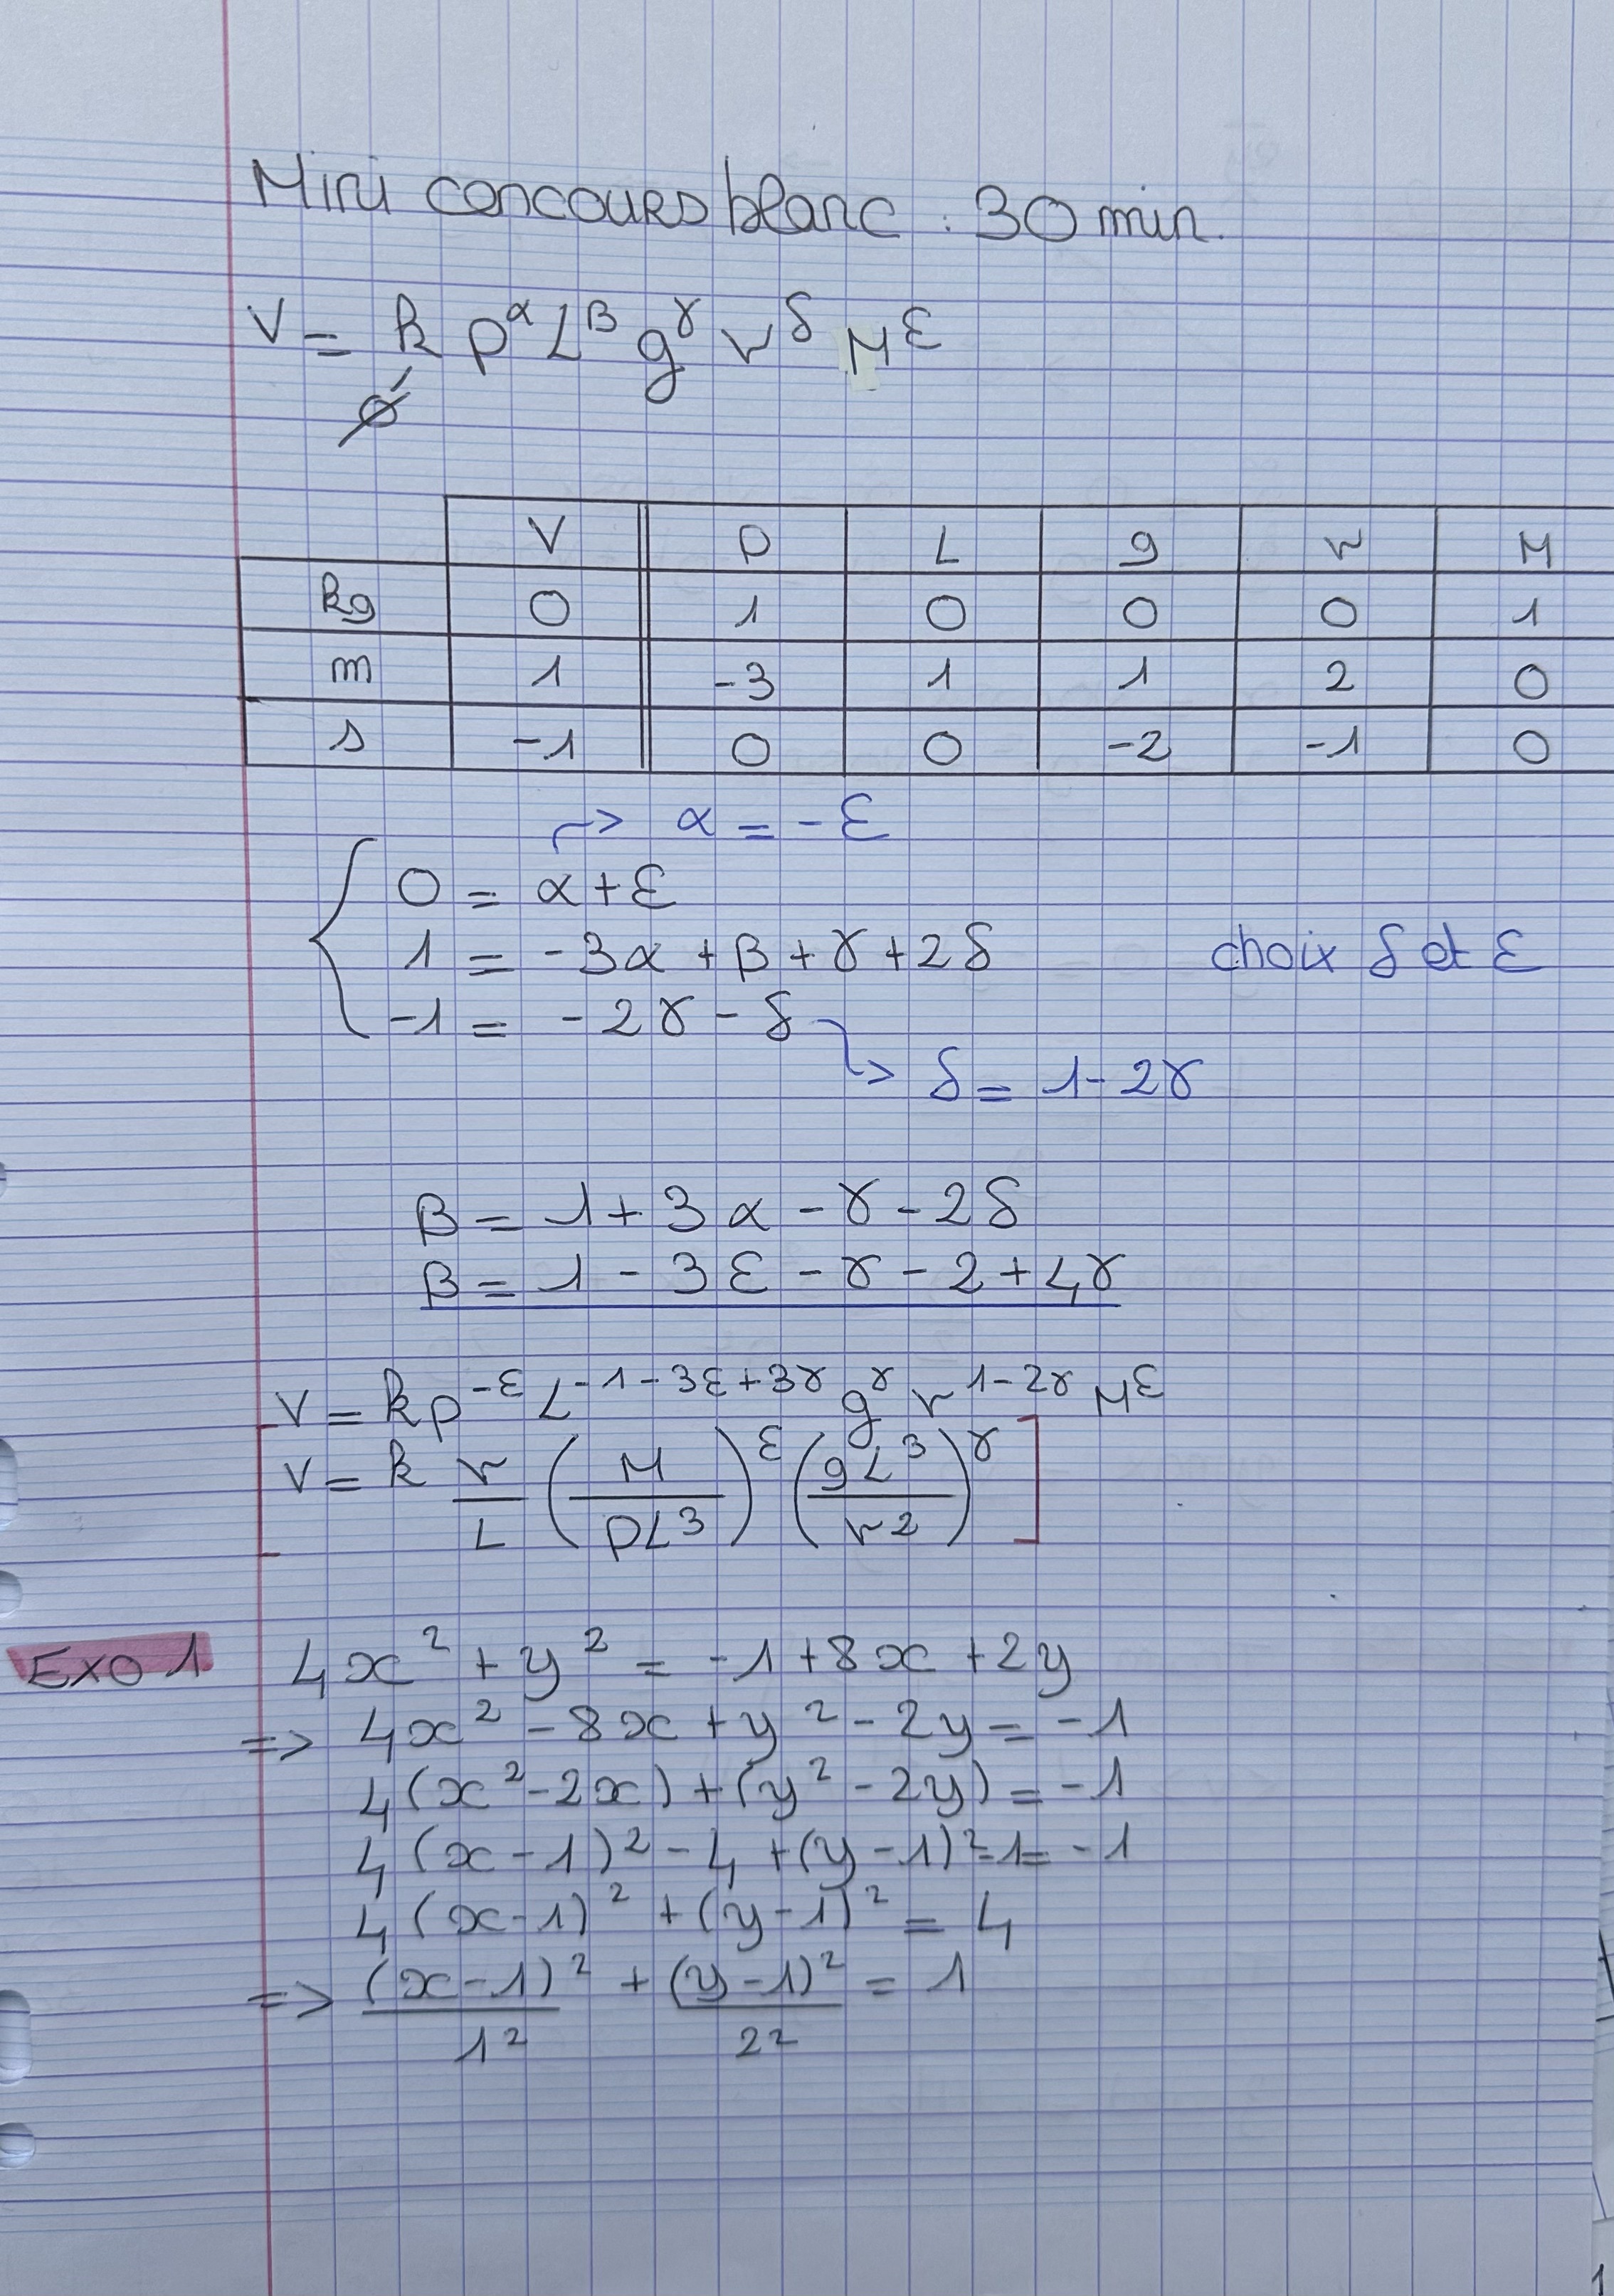 Mini concours blanc : 30 min.
V = k ρ^α L^β g^γ ν^δ M^ε
V ρ L g ν M
kg 0 1 0 0 0 1
m 1 -3 1 1 2 0
s -1 0 0 -2 -1 0
→ α = -ε
0 = α + ε
1 = -3α + β + γ + 2δ choix δ et ε
-1 = -2γ - δ
→ δ = 1 - 2γ
β = 1 + 3α - γ - 2δ
β = 1 - 3ε - γ - 2 + 4γ
V = kρ^(-ε) L^(-1-3ε+3γ) g^γ ν^(1-2γ) M^ε
V = k ν/L (M/ρL³)^ε (gL³/ν²)^γ
Exo 1 4x² + y² = -1 + 8x + 2y
=> 4x² - 8x + y² - 2y = -1
4(x² - 2x) + (y² - 2y) = -1
4(x - 1)² - 4 + (y - 1)² - 1 = -1
4(x - 1)² + (y - 1)² = 4
=> (x - 1)²/1² + (y - 1)²/2² = 1